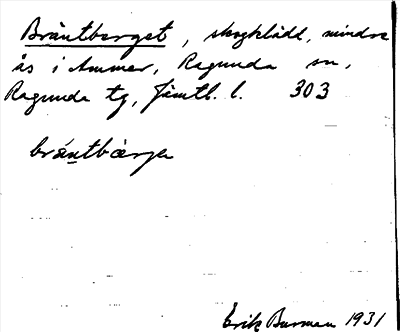 Bräntberget, skogklädd, mindre
ås i Ammer, Ragunda sn,
Ragunda tg, Jämtl. l. 303
bräntbärge
Erik Burman 1931